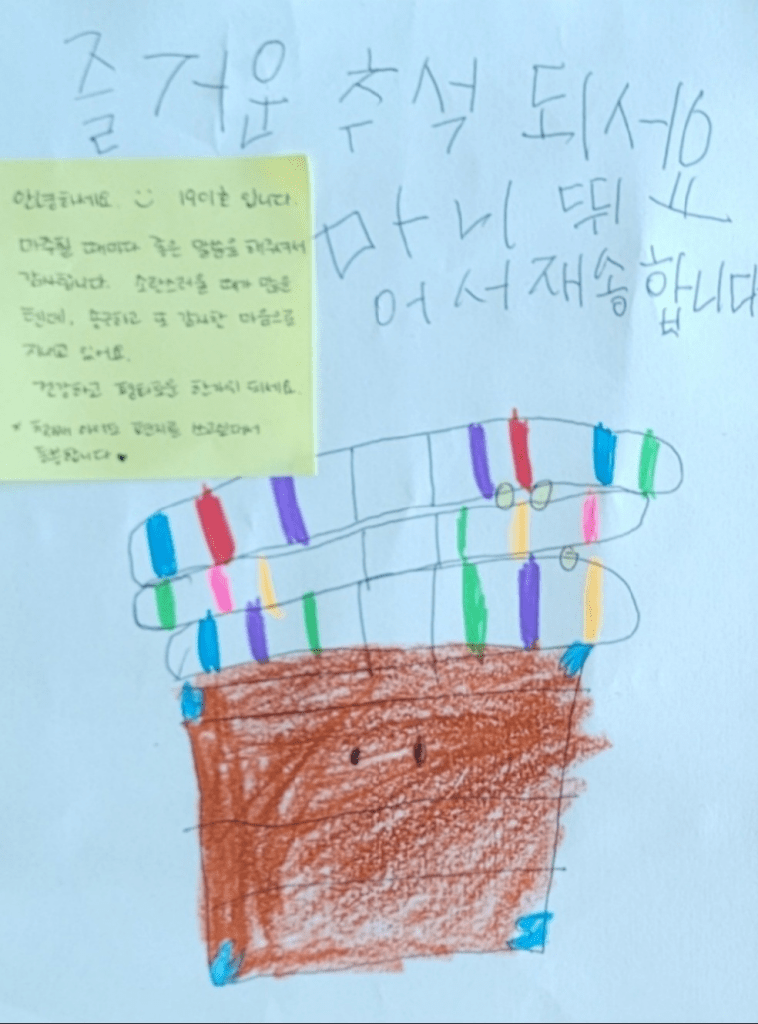 즐거운 추석 되세요
마니 뛰
어서재송합니다
안녕하세요. 19이호 입니다.
마주칠 때마다 좋은 말씀을 해주셔서
감사합니다. 소란스러울 때가 많을
텐데, 송구하고 또 감사한 마음으로
지내고 있어요.
건강하고 평화로운 한가위 되세요.
* 아이도 편지를 쓰고싶다해서
동봉합니다 ♥